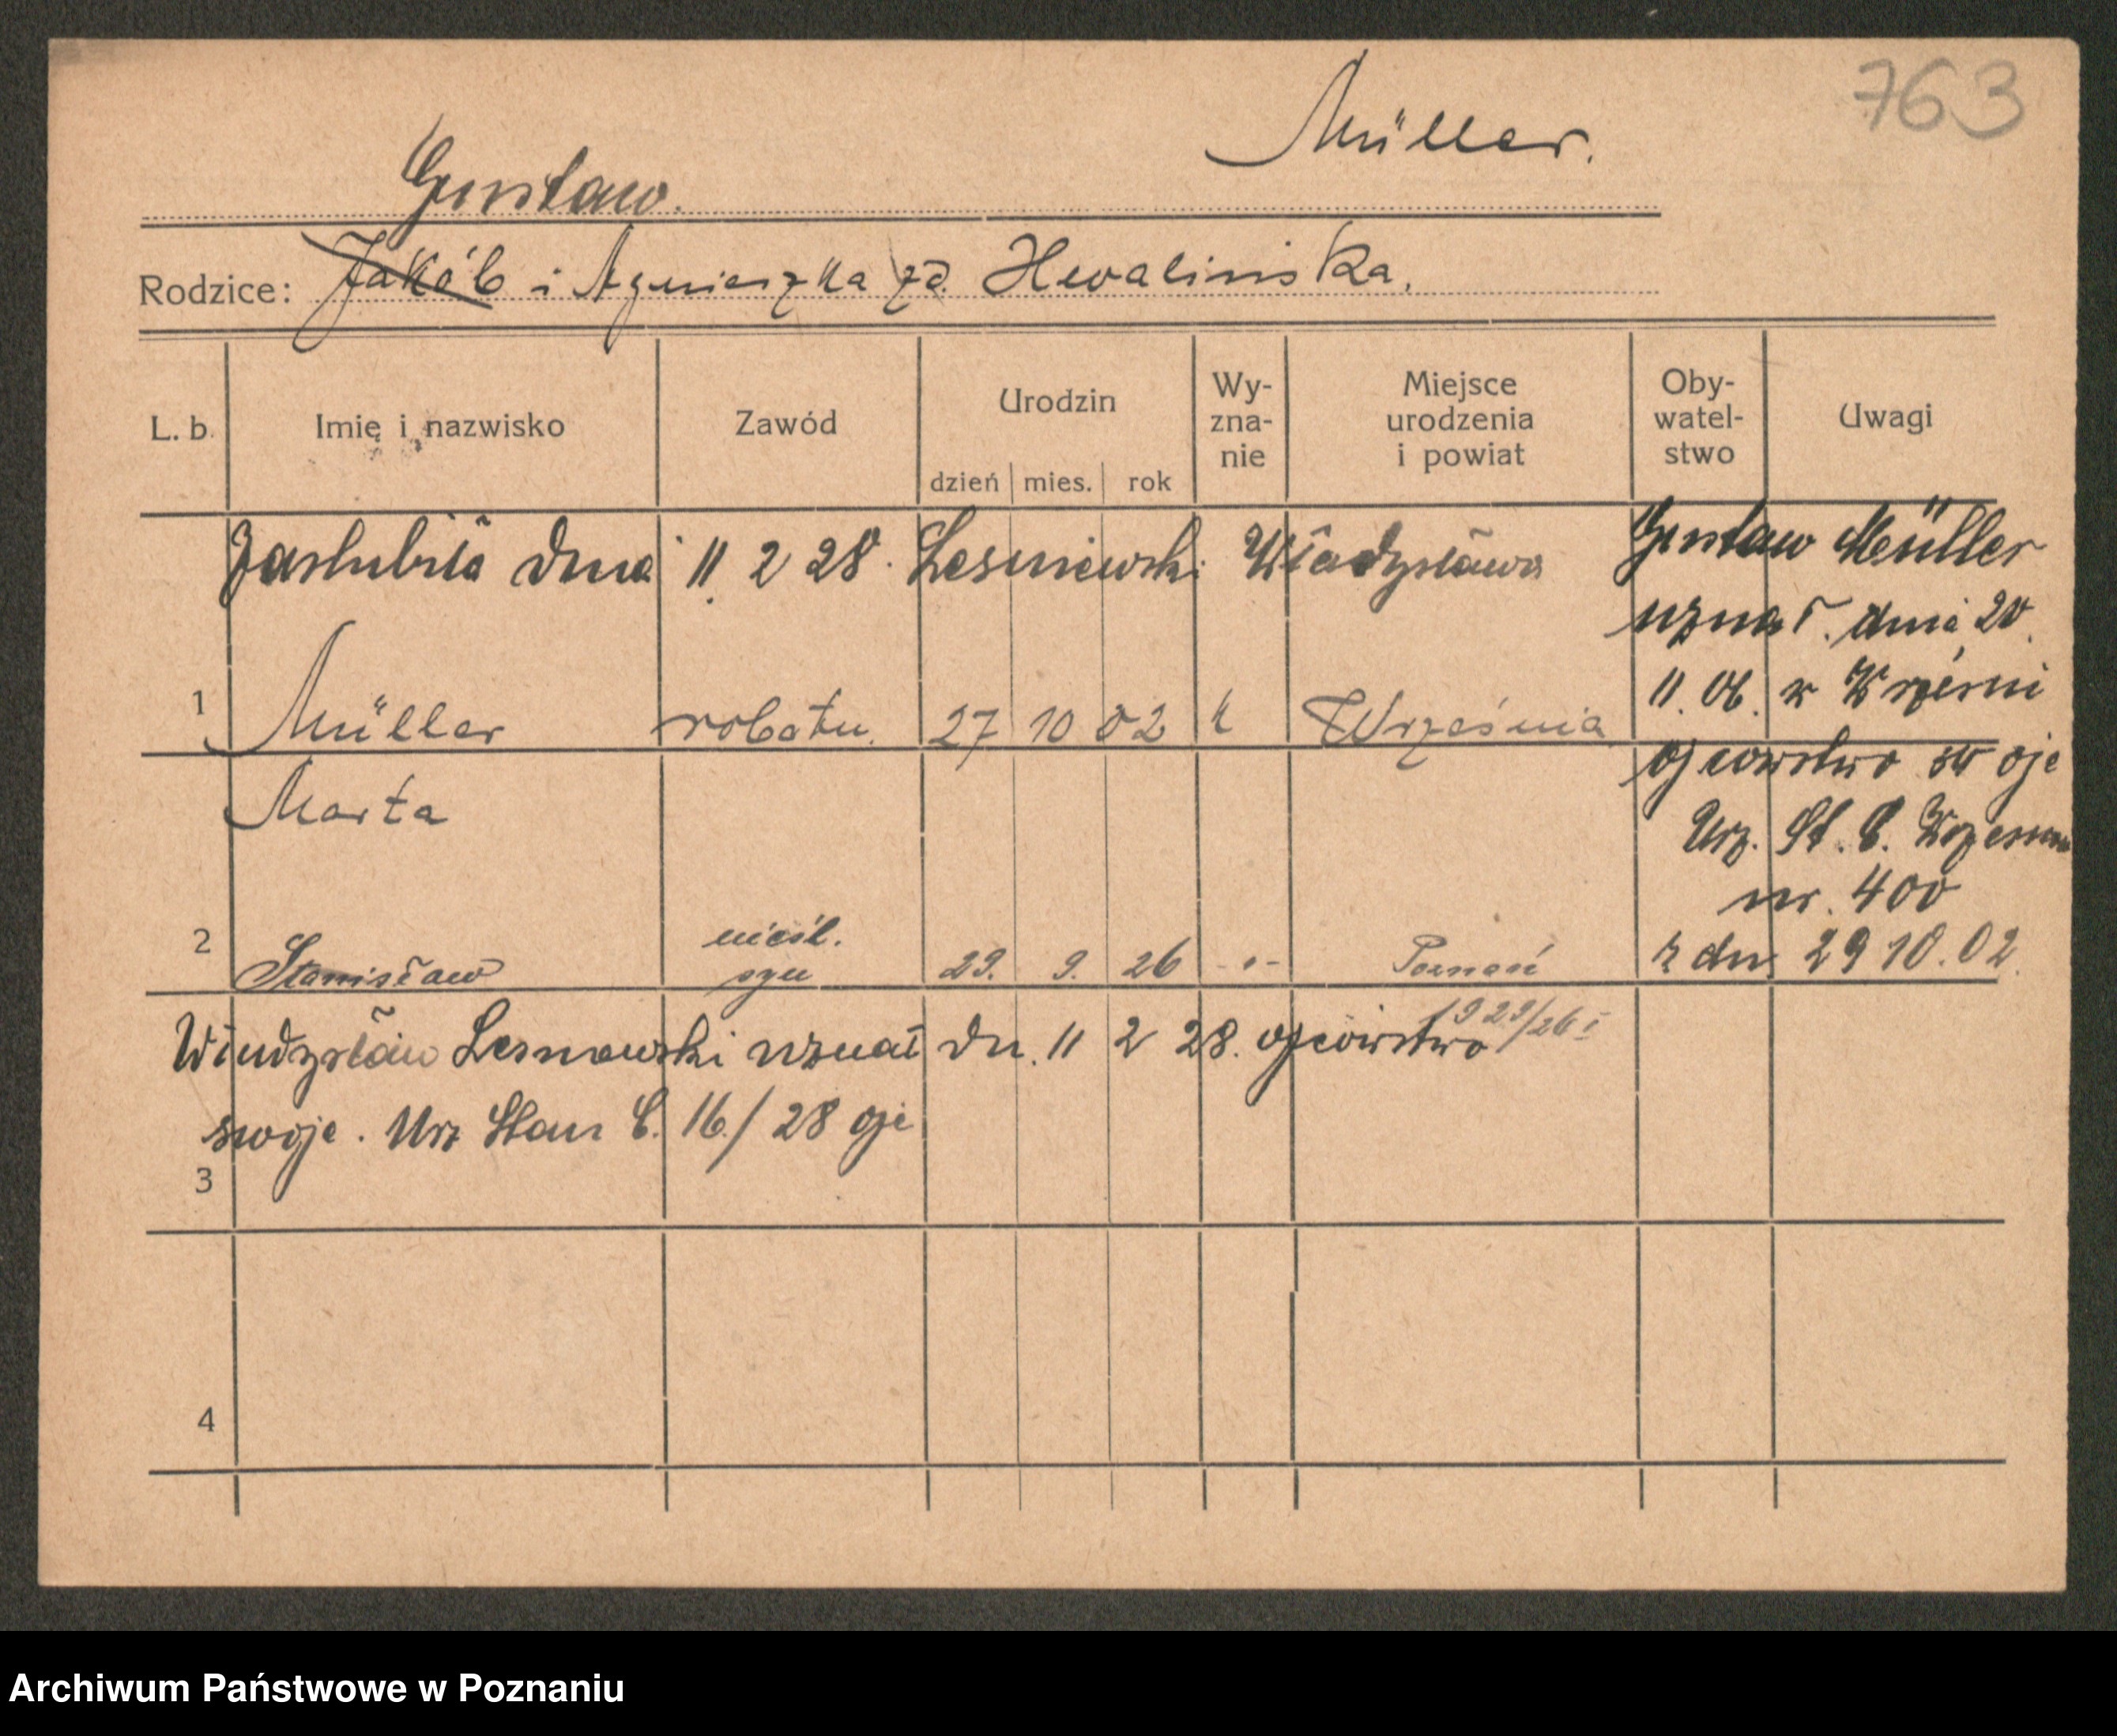 763
Müller.
Gustaw.
Rodzice: Jakób i Agnieszka zd. Hewalinska.
L. b. Imię i nazwisko Zawód Urodzin dzień mies. rok Wy-zna-nie Miejsce urodzenia i powiat Oby-watel-stwo Uwagi
Zaslubiła dnia 11 2 28. Lesniewski Władysława
Gustaw Müller
uznał dnia 20.
11. 06. w Wrześni
ojcowstwo swoje
Urz. St. C. Wrzesnia
nr. 400
z dn. 29 10. 02.
1 Müller robotn. 27 10 02 k Września
Marta
2 Stanisław nieśl. syn 29. 9. 26 -"- Poznań
1929/26 I
Władysław Lesniewski uznał dn. 11 2 28. ojcowstwo
swoje. Urz Stan C. 16./28
3
4
Archiwum Państwowe w Poznaniu